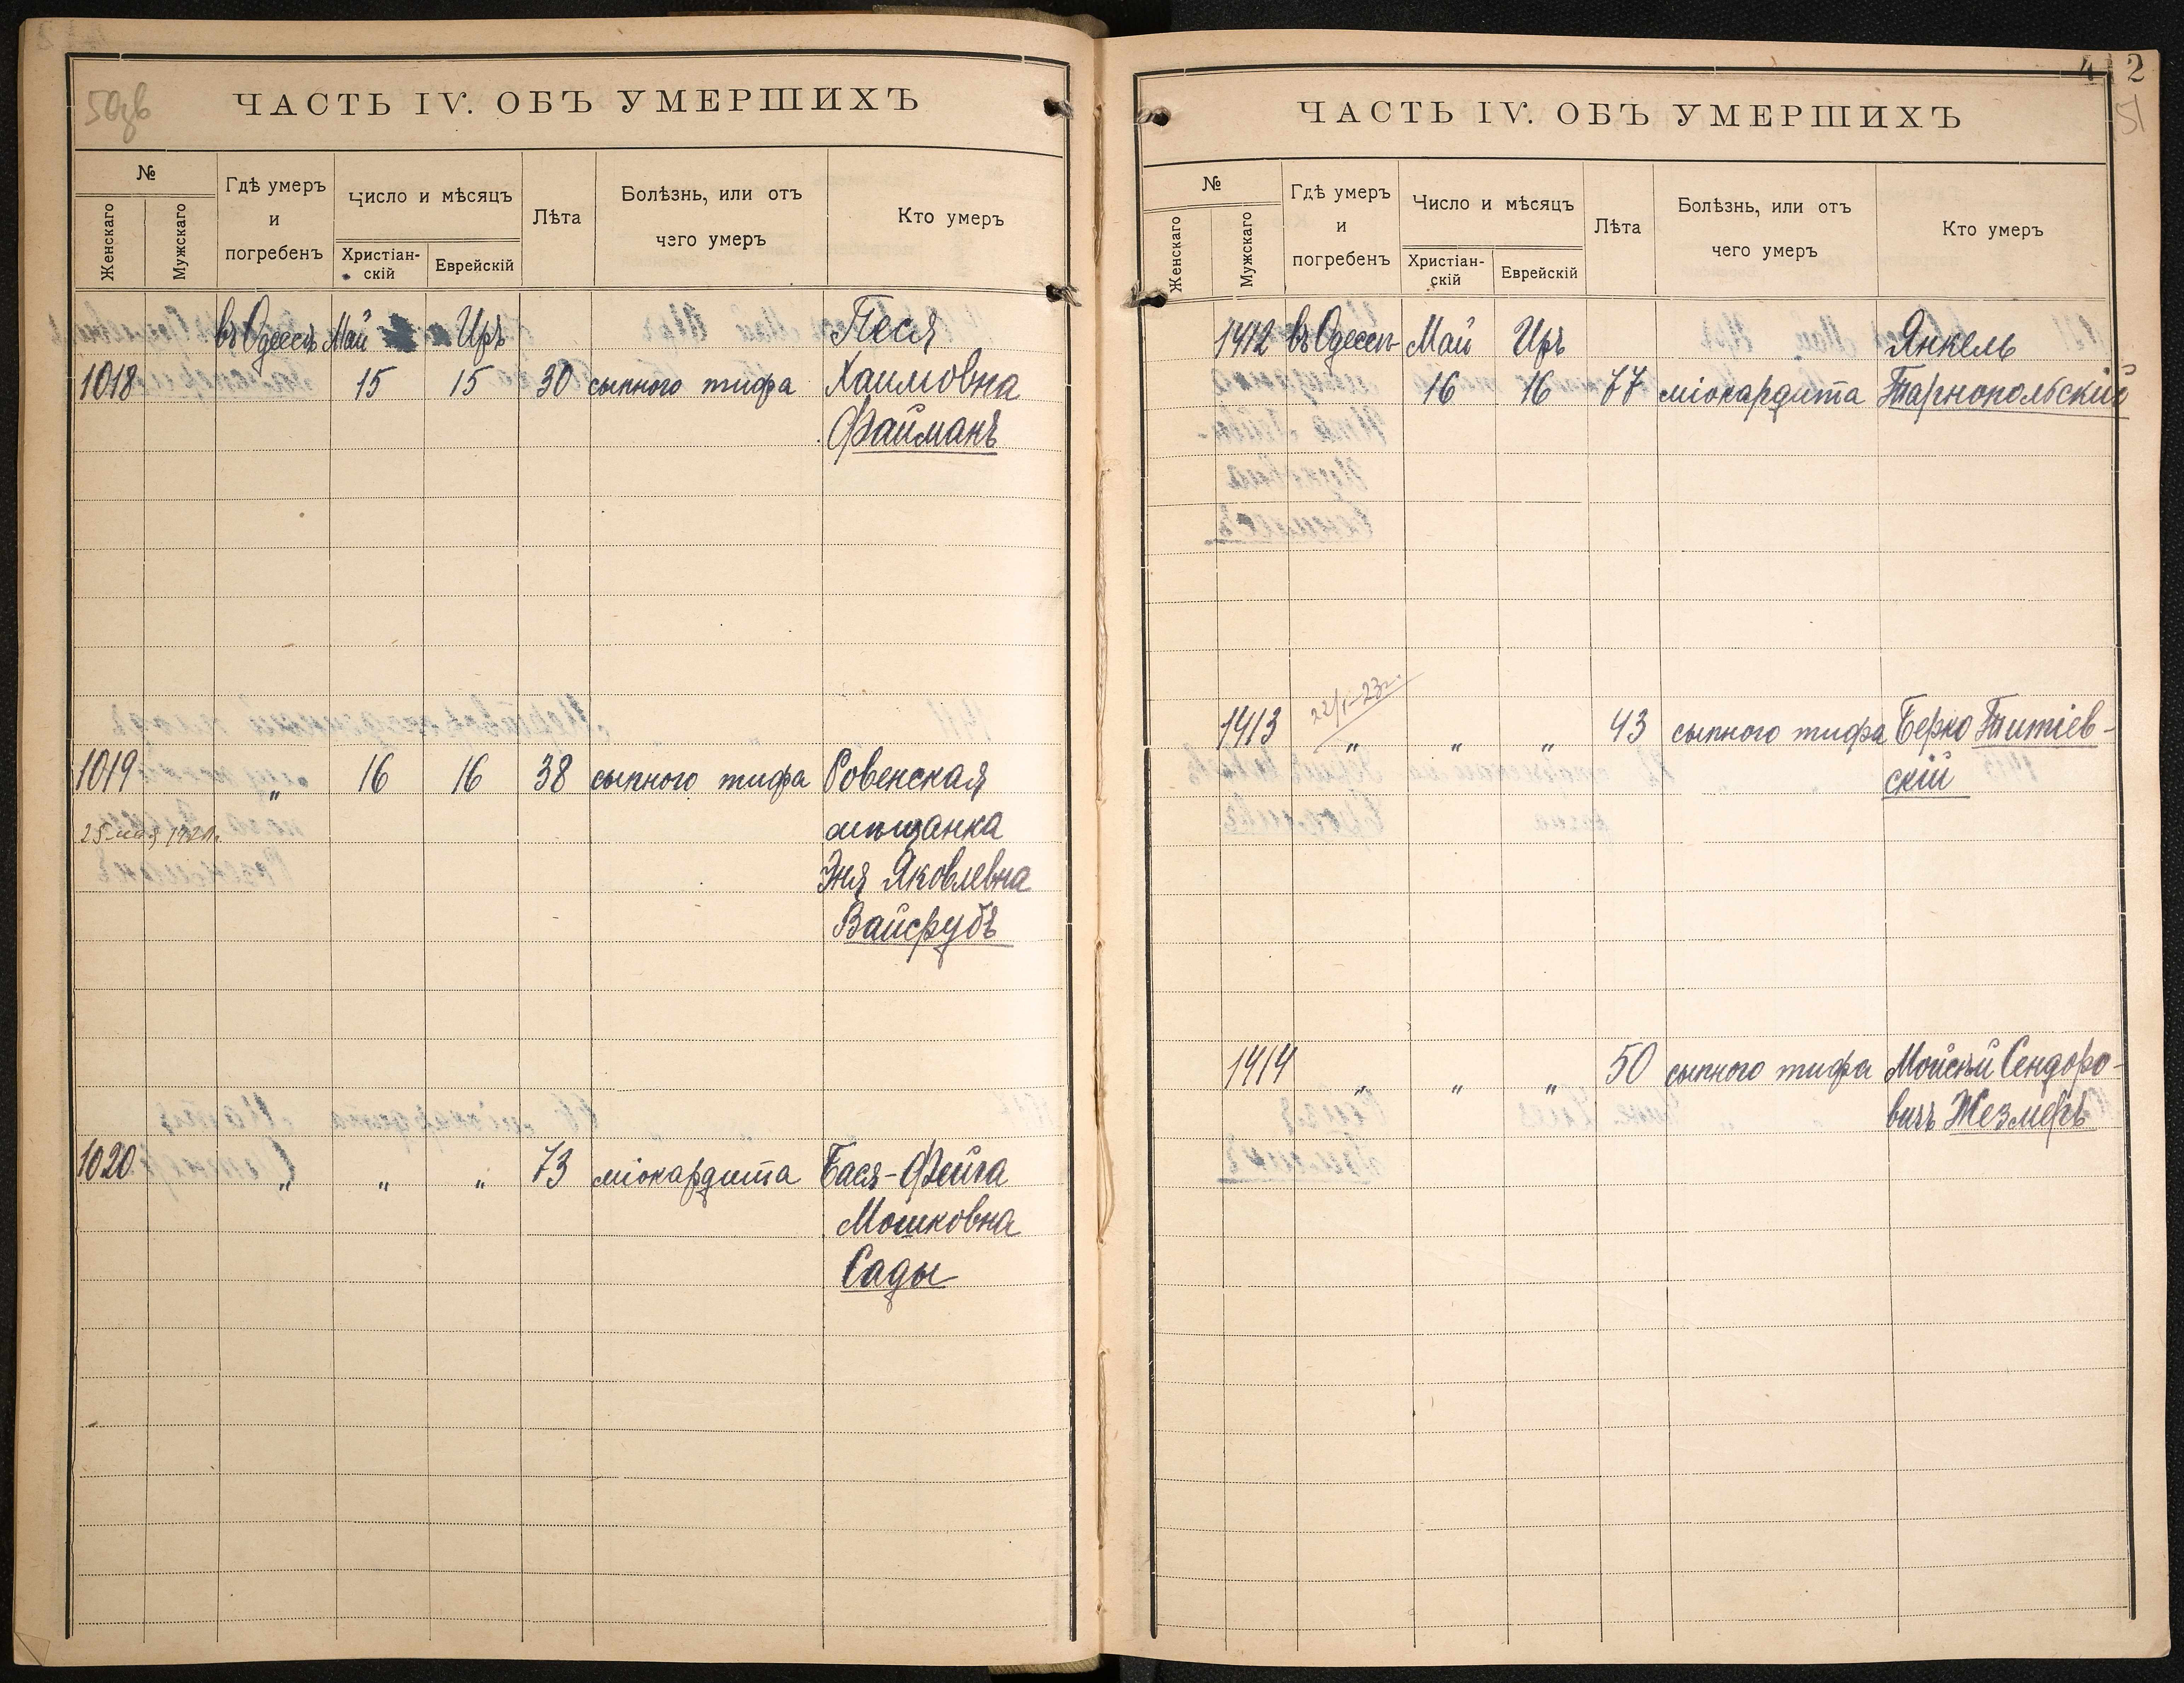 50зв
ЧАСТЬ IV. ОБЪ УМЕРШИХЪ
№
Женскаго
Мужскаго
Гдѣ умеръ
и
погребенъ
Число и мѣсяцъ
Христіан-
скій
Еврейскій
Лѣта
Болѣзнь, или отъ
чего умеръ
Кто умеръ
въ Одессѣ Май Иръ Песя
1018 15 15 30 сыпного тифа Хаимовна
Файманъ
1019 „ 16 16 38 сыпного тифа Ровенская
25 мая 1921г. мѣщанка
Эня Яковлевна
Вайсрубъ
1020 „ „ „ 73 міокардита Бася-Фейга
Мошковна
Сады
42
51
ЧАСТЬ IV. ОБЪ УМЕРШИХЪ
№
Женскаго
Мужскаго
Гдѣ умеръ
и
погребенъ
Число и мѣсяцъ
Христіан-
скій
Еврейскій
Лѣта
Болѣзнь, или отъ
чего умеръ
Кто умеръ
1412 въ Одессѣ Май Иръ Янкель
16 16 77 міокардита Тарнопольскій
22/I-23г.
1413 „ „ „ 43 сыпного тифа Берко Титіев-
скій
1414 „ „ „ 50 сыпного тифа Мойсѣй Сендоро-
вичъ Жезмеръ